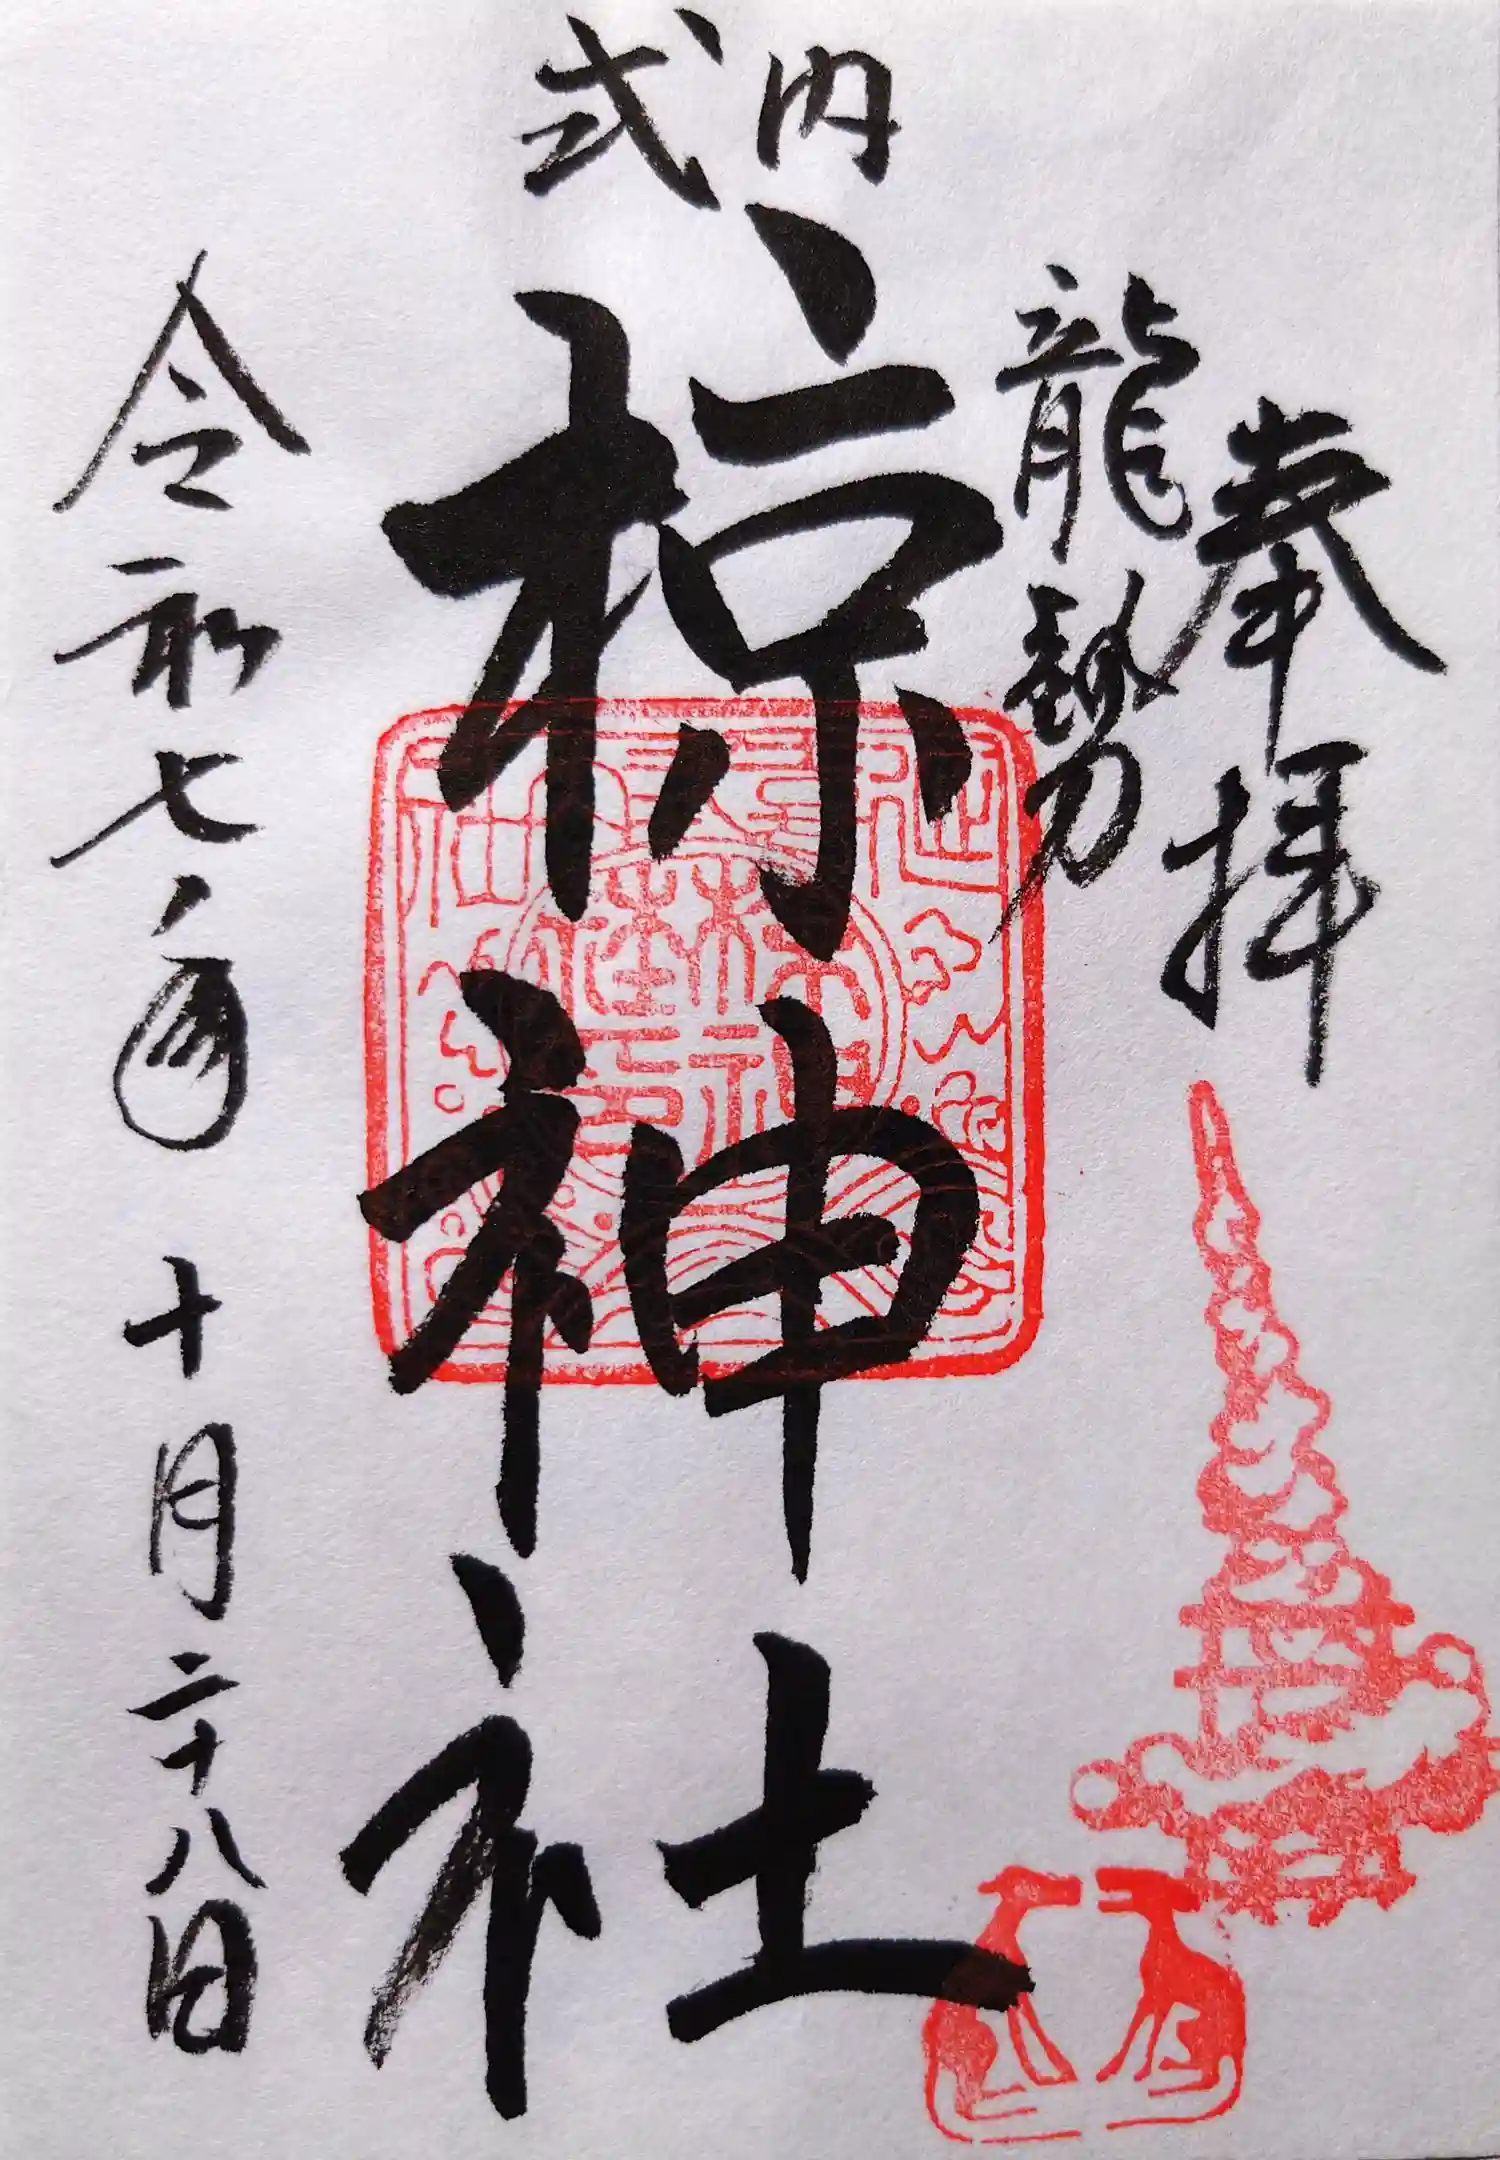 奉拝
龍勢
式内
椋神社
令和七年 十月二十八日